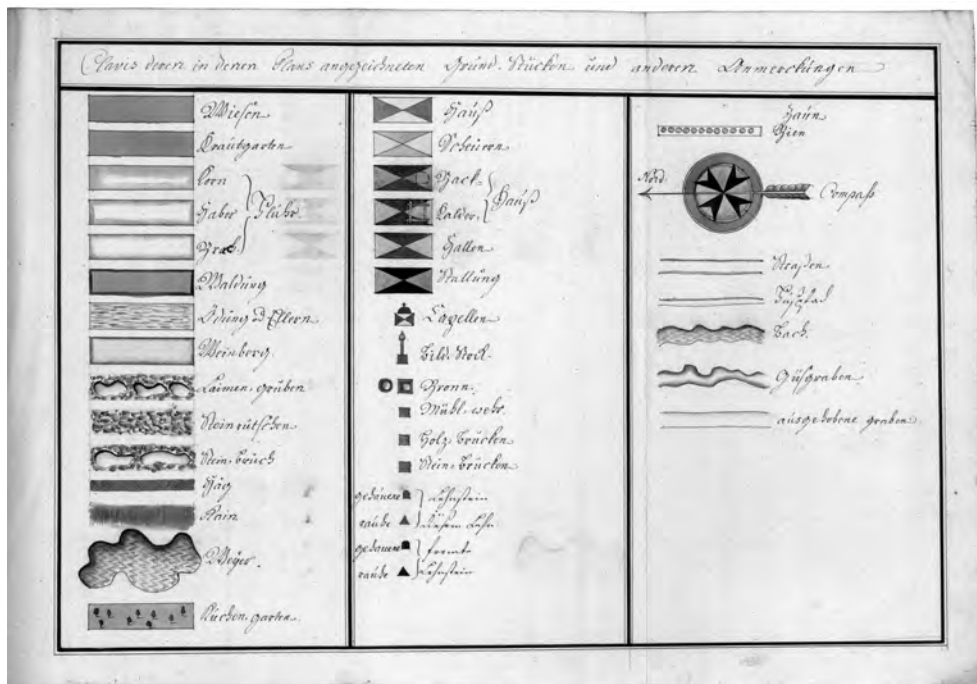 Clavis deren in denen Plans angezeichneten Grund-Stücken und anderen Anmerckungen
Wiesen
Krautgarten
Korn
Haber
Brach
Fluhr.
Waldung
Ödung od Ellern
Weinberg.
Laimen-gruben
Steinrutschen
Stein-bruch
Häg
Rain
Weyer.
Kuchen-garten.
Hauß
Scheuern
Back-
Kalder.
Hauß
Hallen
Stallung
Capellen
Bild-Stock.
Bronn.
Mühl-wehr.
Holz-Brücken
Stein-Brücken
gehauene
rauhe
Lehnstein
diesem Lehn
gehauene
rauhe
fremte
Lehnstein
Zaun
Bien
Nord.
Compaß
Straßen
Fußpfad
Bach.
Gußgraben
ausgehobene graben.